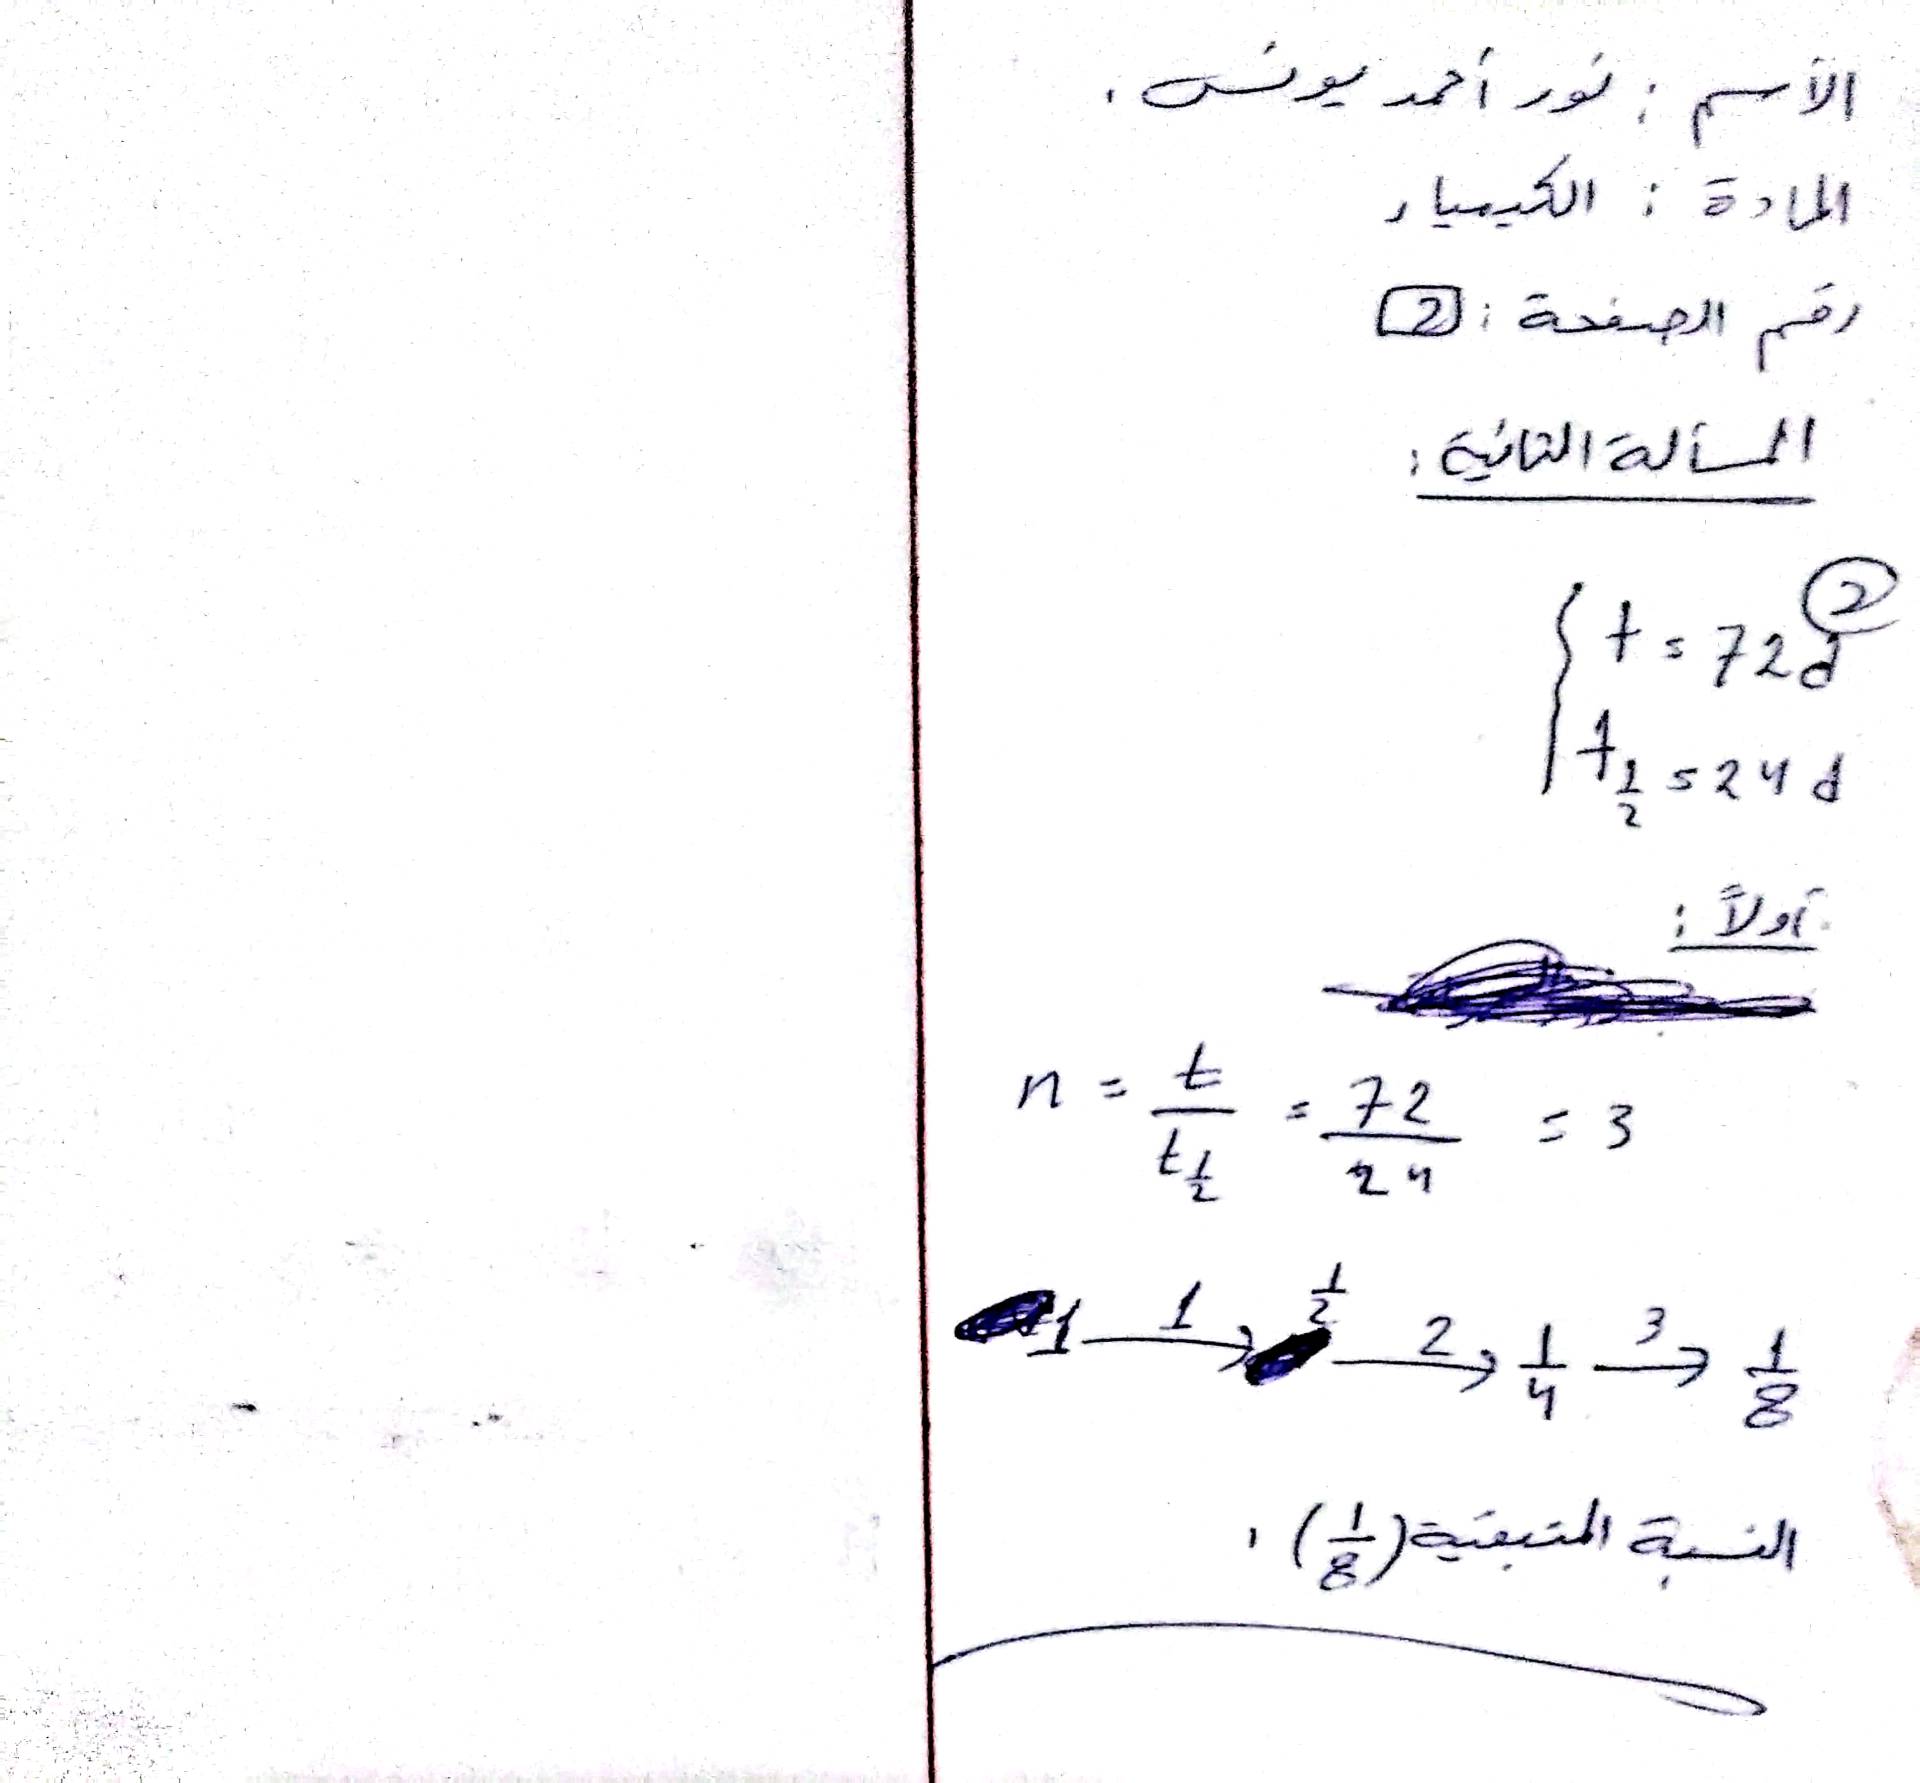 الأسم : نور أحمد يونس .
المادة : الكيمياء
رقم الصفحة : 2
المسألة الثانية :
2
t = 72 d
t 1/2 = 24 d
أولاً :
n = t / t 1/2 = 72 / 24 = 3
1 —1→ 1/2 —2→ 1/4 —3→ 1/8
النسبة المتبقية (1/8) .